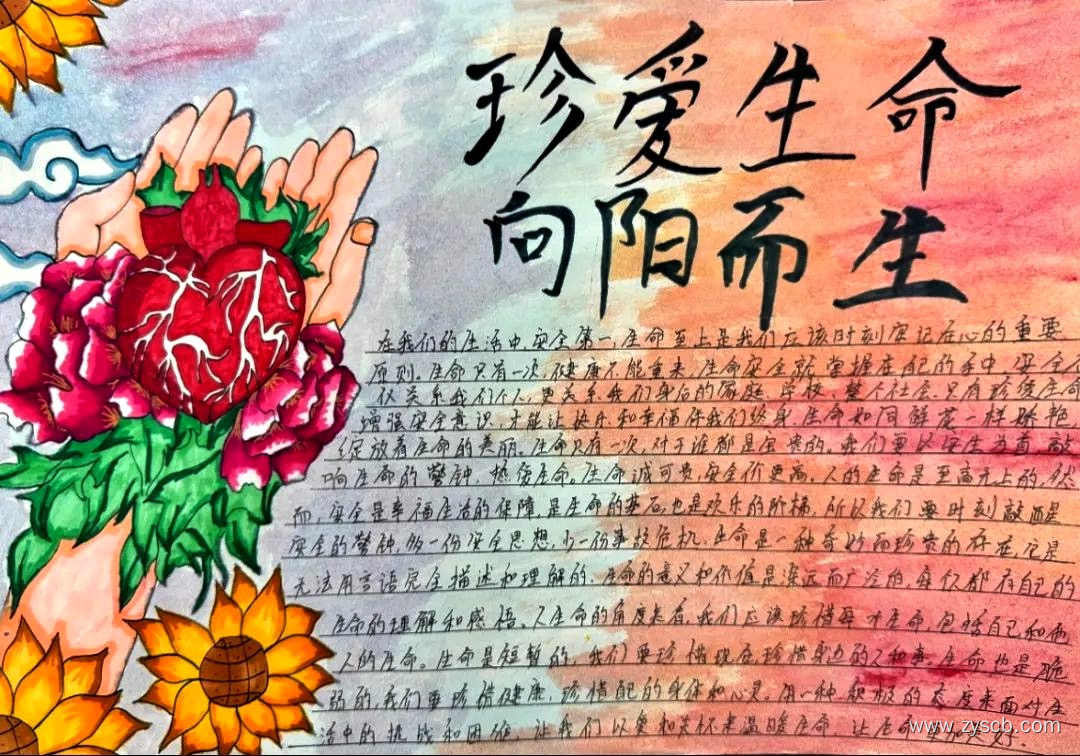 珍爱生命
向阳而生
在我们的生活中,安全第一,生命至上是我们应该时刻牢记在心的重要
原则,生命只有一次,健康不能重来,生命安全就掌握在自己的手中,安全不
仅关系我们个人,更关系我们身后的家庭,学校,整个社会,只有珍爱生命
增强安全意识,才能让快乐和幸福伴我们终身,生命如同鲜花一样娇艳,
绽放着生命的美丽。生命只有一次,对于谁都是宝贵的,我们要以安生为首,敲
响生命的警钟,热爱生命。生命诚可贵,安全价更高。人的生命是至高无上的,然
而,安全是幸福生活的保障,是生命的基石,也是欢乐的阶梯,所以我们要时刻敲醒
安全的警钟,多一份安全思想,少一份事故危机,生命是一种奇妙而珍贵的存在,它是
无法用言语完全描述和理解的,生命的意义和价值是深远而广泛的,每个人都有自己的
生命的理解和感悟。从生命的角度来看,我们应该珍惜每一个生命,包括自己和他
人的生命。生命是短暂的,我们要珍惜现在,珍惜身边的人和事。生命也是脆
弱的,我们要珍惜健康,珍惜自己的身体和心灵。用一种积极的态度来面对生
活中的挑战和困难,让我们以爱和关怀来温暖生命,让生命
www.zyscb.com